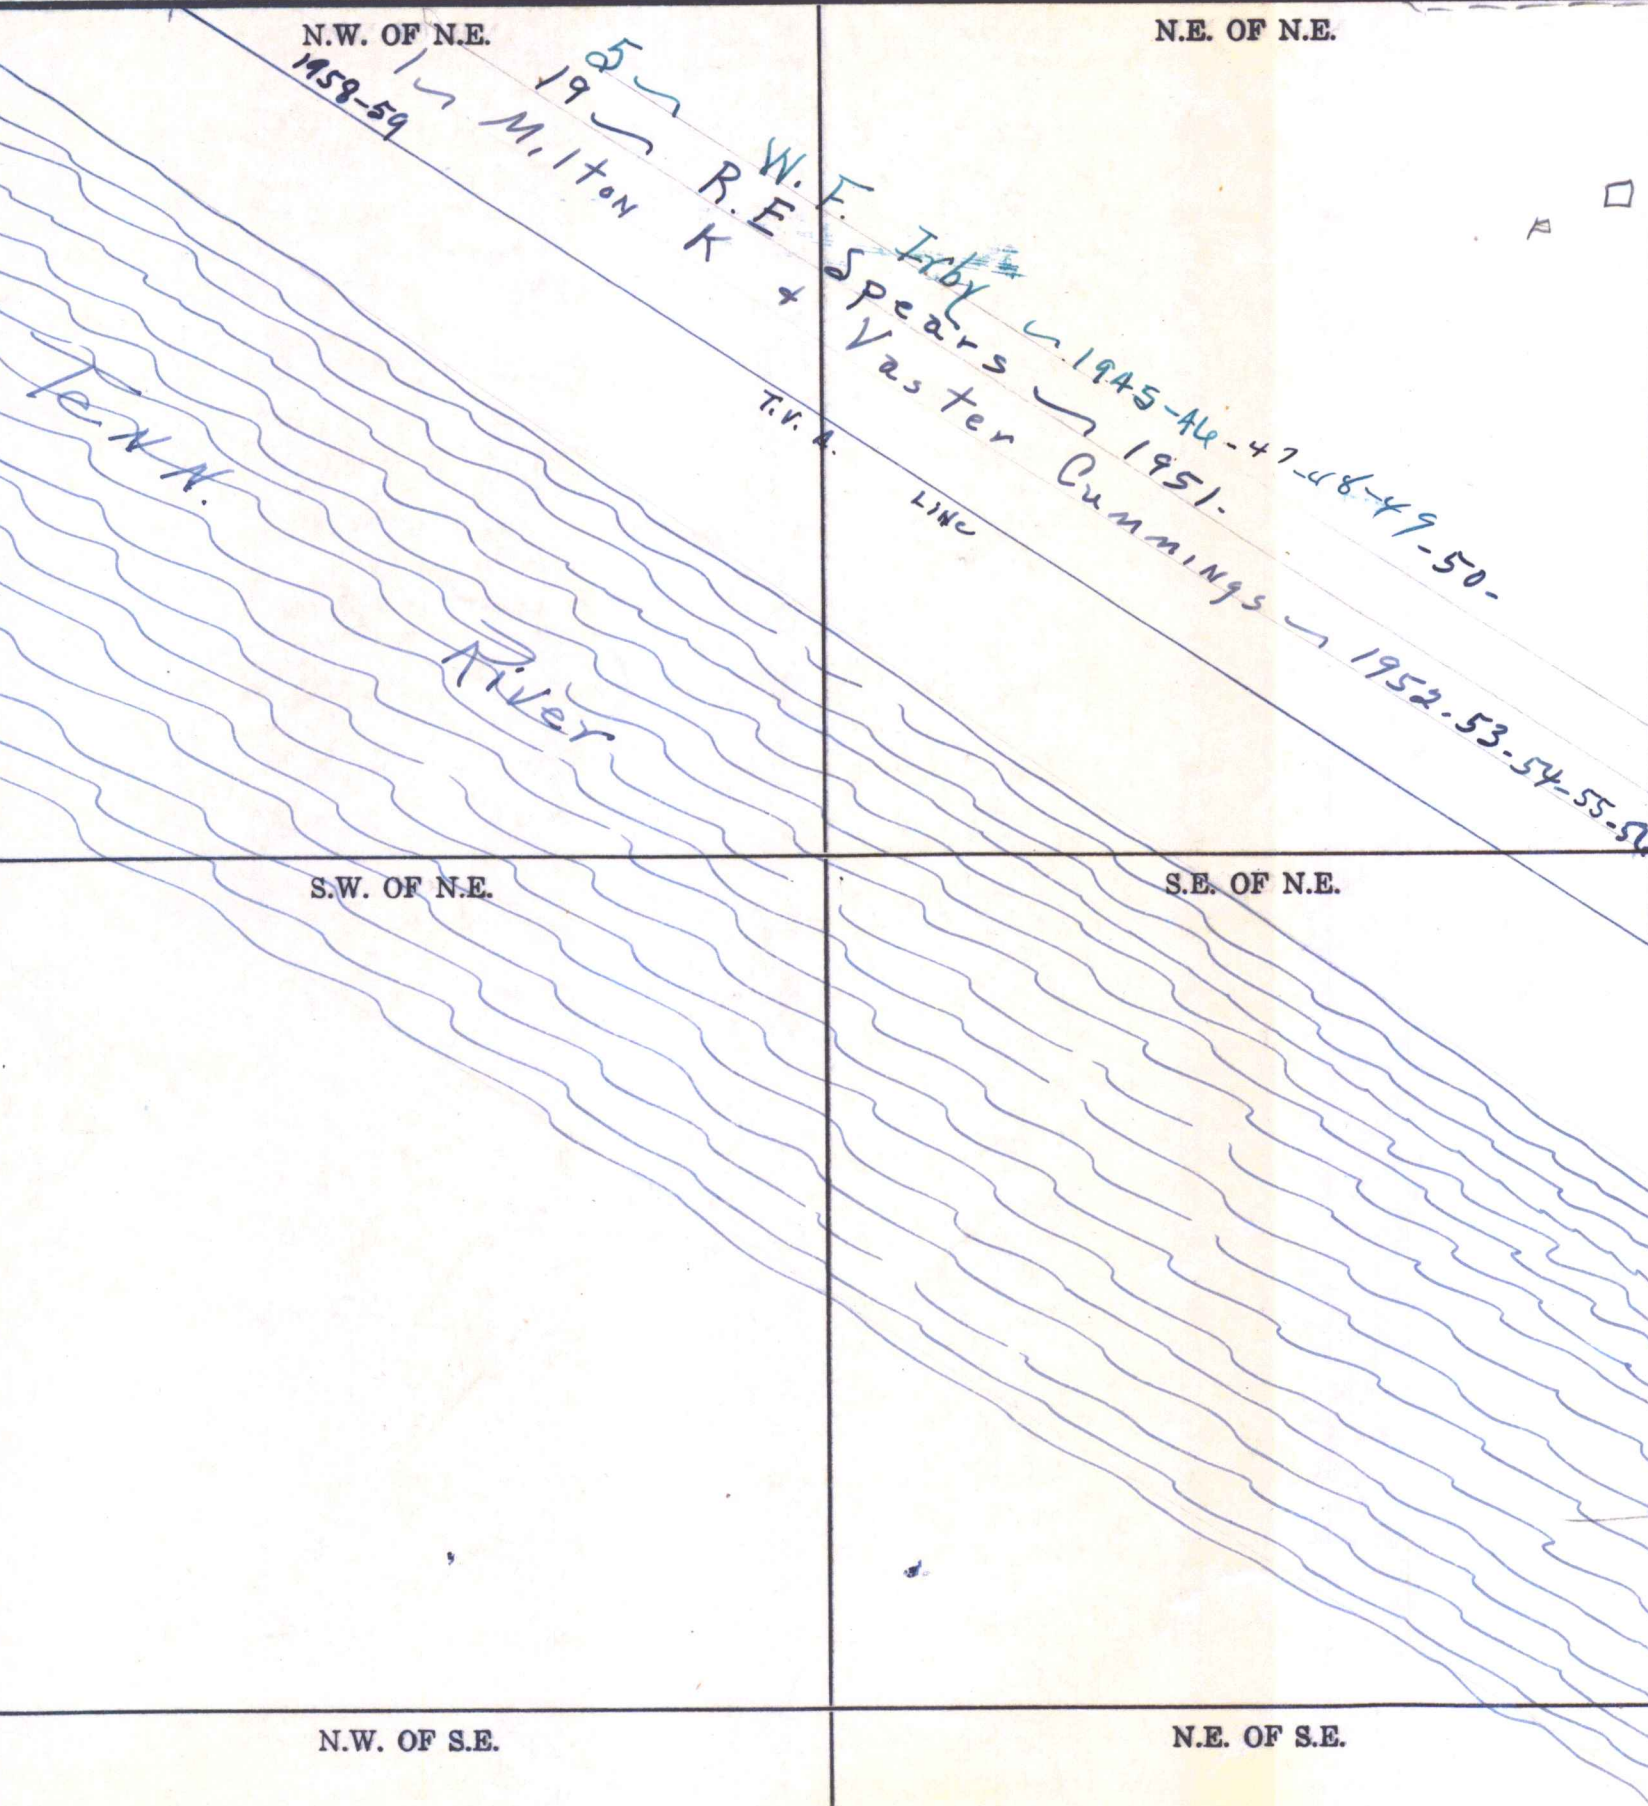 N.W. OF N.E.
N.E. OF N.E.
5 ~ W. F. Irby ~ 1945-46-47-48-49-50-
19 ~ R. E Spears ~ 1951.
1 ~ Milton K & Vaster Cummings ~ 1952-53-54-55-56
1958-59
T.V.A. LINE
TENN. River
S.W. OF N.E.
S.E. OF N.E.
N.W. OF S.E.
N.E. OF S.E.